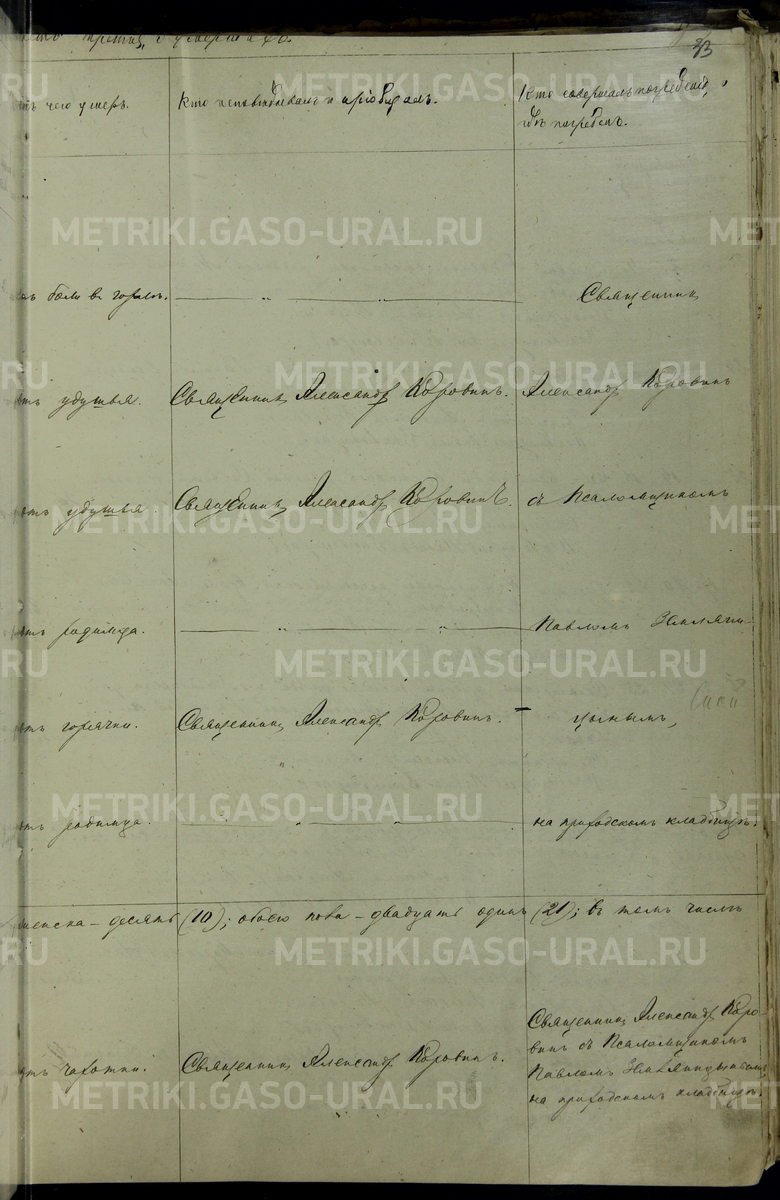 третія, о умершихъ.
23
отъ чего умеръ.
Кто исповѣдывалъ и пріобщалъ.
Кто совершалъ погребеніе,
гдѣ погребенъ.
METRIKI.GASO-URAL.RU
отъ боли въ горлѣ. — „ — „ — Священникъ
METRIKI.GASO-URAL.RU
отъ удушья. Священникъ Александръ Коровинъ. Александръ Коровинъ
отъ удушья. Священникъ Александръ Коровинъ. съ Псаломщикомъ
METRIKI.GASO-URAL.RU
отъ родимца. — „ — „ — Павломъ Земляни-
METRIKI.GASO-URAL.RU
отъ горячки. Священникъ Александръ Коровинъ. — цынымъ,
METRIKI.GASO-URAL.RU
отъ родимца. — „ — „ — на приходскомъ кладбищѣ.
женска – десять (10); обоего пола – двадцать одинъ (21); въ томъ числѣ
METRIKI.GASO-URAL.RU
отъ чахотки. Священникъ Александръ Коровинъ.
Священникъ Александръ Коро-
винъ съ Псаломщикомъ
Павломъ Земляницынымъ
на приходскомъ кладбищѣ.
METRIKI.GASO-URAL.RU